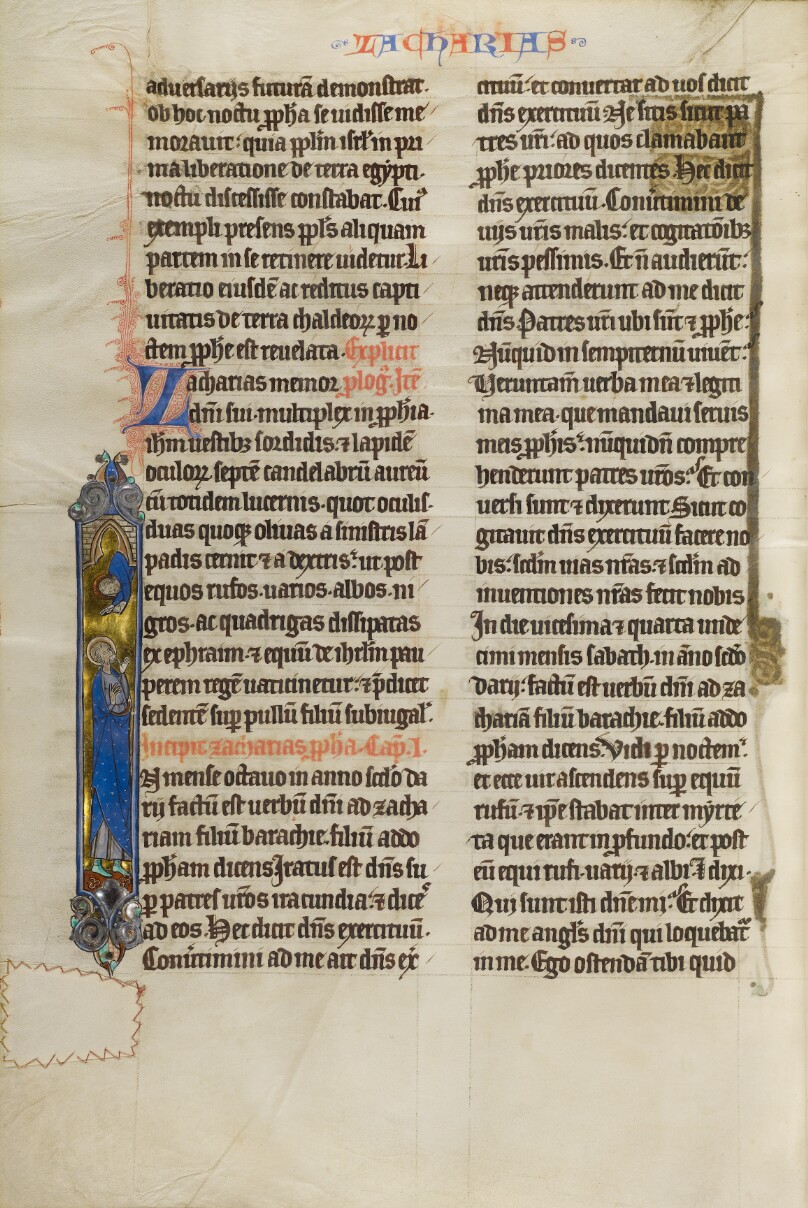 ZACHARIAS
aduersarijs futurā demonstrat.
ob hoc noctu ꝓph̄a se uidisse me
morauit: quia ꝓplm̄ isrl̄ in pri
ma liberatione de terra egypti.
noctu discessisse constabat. Cuiꝰ
exempli presens ꝓpl̄s aliquam
partem in se retinere uidetur. Li
beratio eiusdē ac reditus capti
uitatis de terra chaldeoꝝ ꝑ no
ctem ꝓphē est reuelata. Explicit
Zacharias memor plogꝰ. Itē
dn̄i sui. multiplex in ꝓph̄ia.
ih̄m uestibꝫ sordidis. ⁊ lapidē
oculoꝝ septē candelabrū aureū
cū totidem lucernis. quot oculis.
duas quoqꝫ oliuas a sinistris lā
padis cernit ⁊ a dextris: ut post
equos rufos. uarios. albos. ni
gros. ac quadrigas dissipatas
ex ephraim. ⁊ equū de ihrl̄m pau
perem regē uaticinetur: ⁊ p̄dicet
sedentē suꝑ pullū filiū subiugal̄.
Incipit zacharias ꝓph̄a. Cap̄. I.
N mense octauo in anno scd̄o da
rij factū est uerbū dn̄i ad zacha
riam filiū barachie. filiū addo
ꝓph̄am dicens Iratus est dn̄s su
ꝑ patres ur̄os iracundia: ⁊ diceˢ
ad eos. Hec dicit dn̄s exercituū.
Conūtimini ad me ait dn̄s ex̄
cituū: et conuertar ad uos dicit
dn̄s exercituū Ne sitis sicut pa
tres ur̄i: ad quos clamabant
ꝓphē priores dicentes. Hec dicit
dn̄s exercituū. Conūtimini de
uijs ur̄is malis: et cogitatōibꝫ
ur̄is pessimis. Et n̄ audierūt:
neqꝫ attenderunt ad me dicit
dn̄s Patres ur̄i ubi sūt ⁊ ꝓphē:
Nūquid in sempiternū uiuēt:
Veruntam̄ uerba mea ⁊ legiti
ma mea. que mandaui seruis
meis ꝓph̄is: nūquid n̄ compre
henderunt patres ur̄os: Et con
uersi sunt ⁊ dixerunt Sicut co
gitauit dn̄s exercituū facere no
bis: scd̄m uias nr̄as. ⁊ scd̄m ad
inuentiones nr̄as fecit nobis.
In die uicesima ⁊ quarta unde
cimi mensis sabath. in āno scd̄o
darij: factū est uerbū dn̄i ad za
chariā filiū barachie. filiū addo
ꝓph̄am dicens. Vidi ꝑ noctem:
et ecce uir ascendens suꝑ equū
rufū: ⁊ ip̄e stabat inter myrte
ta que erant in ꝓfundo: et post
eū equi rufi. uarij. ⁊ albi. I dixi.
Qui sunt isti dn̄e mi: Et dixit
ad me angl̄s dn̄i qui loquebat᷑
in me. Ego ostendā tibi quid